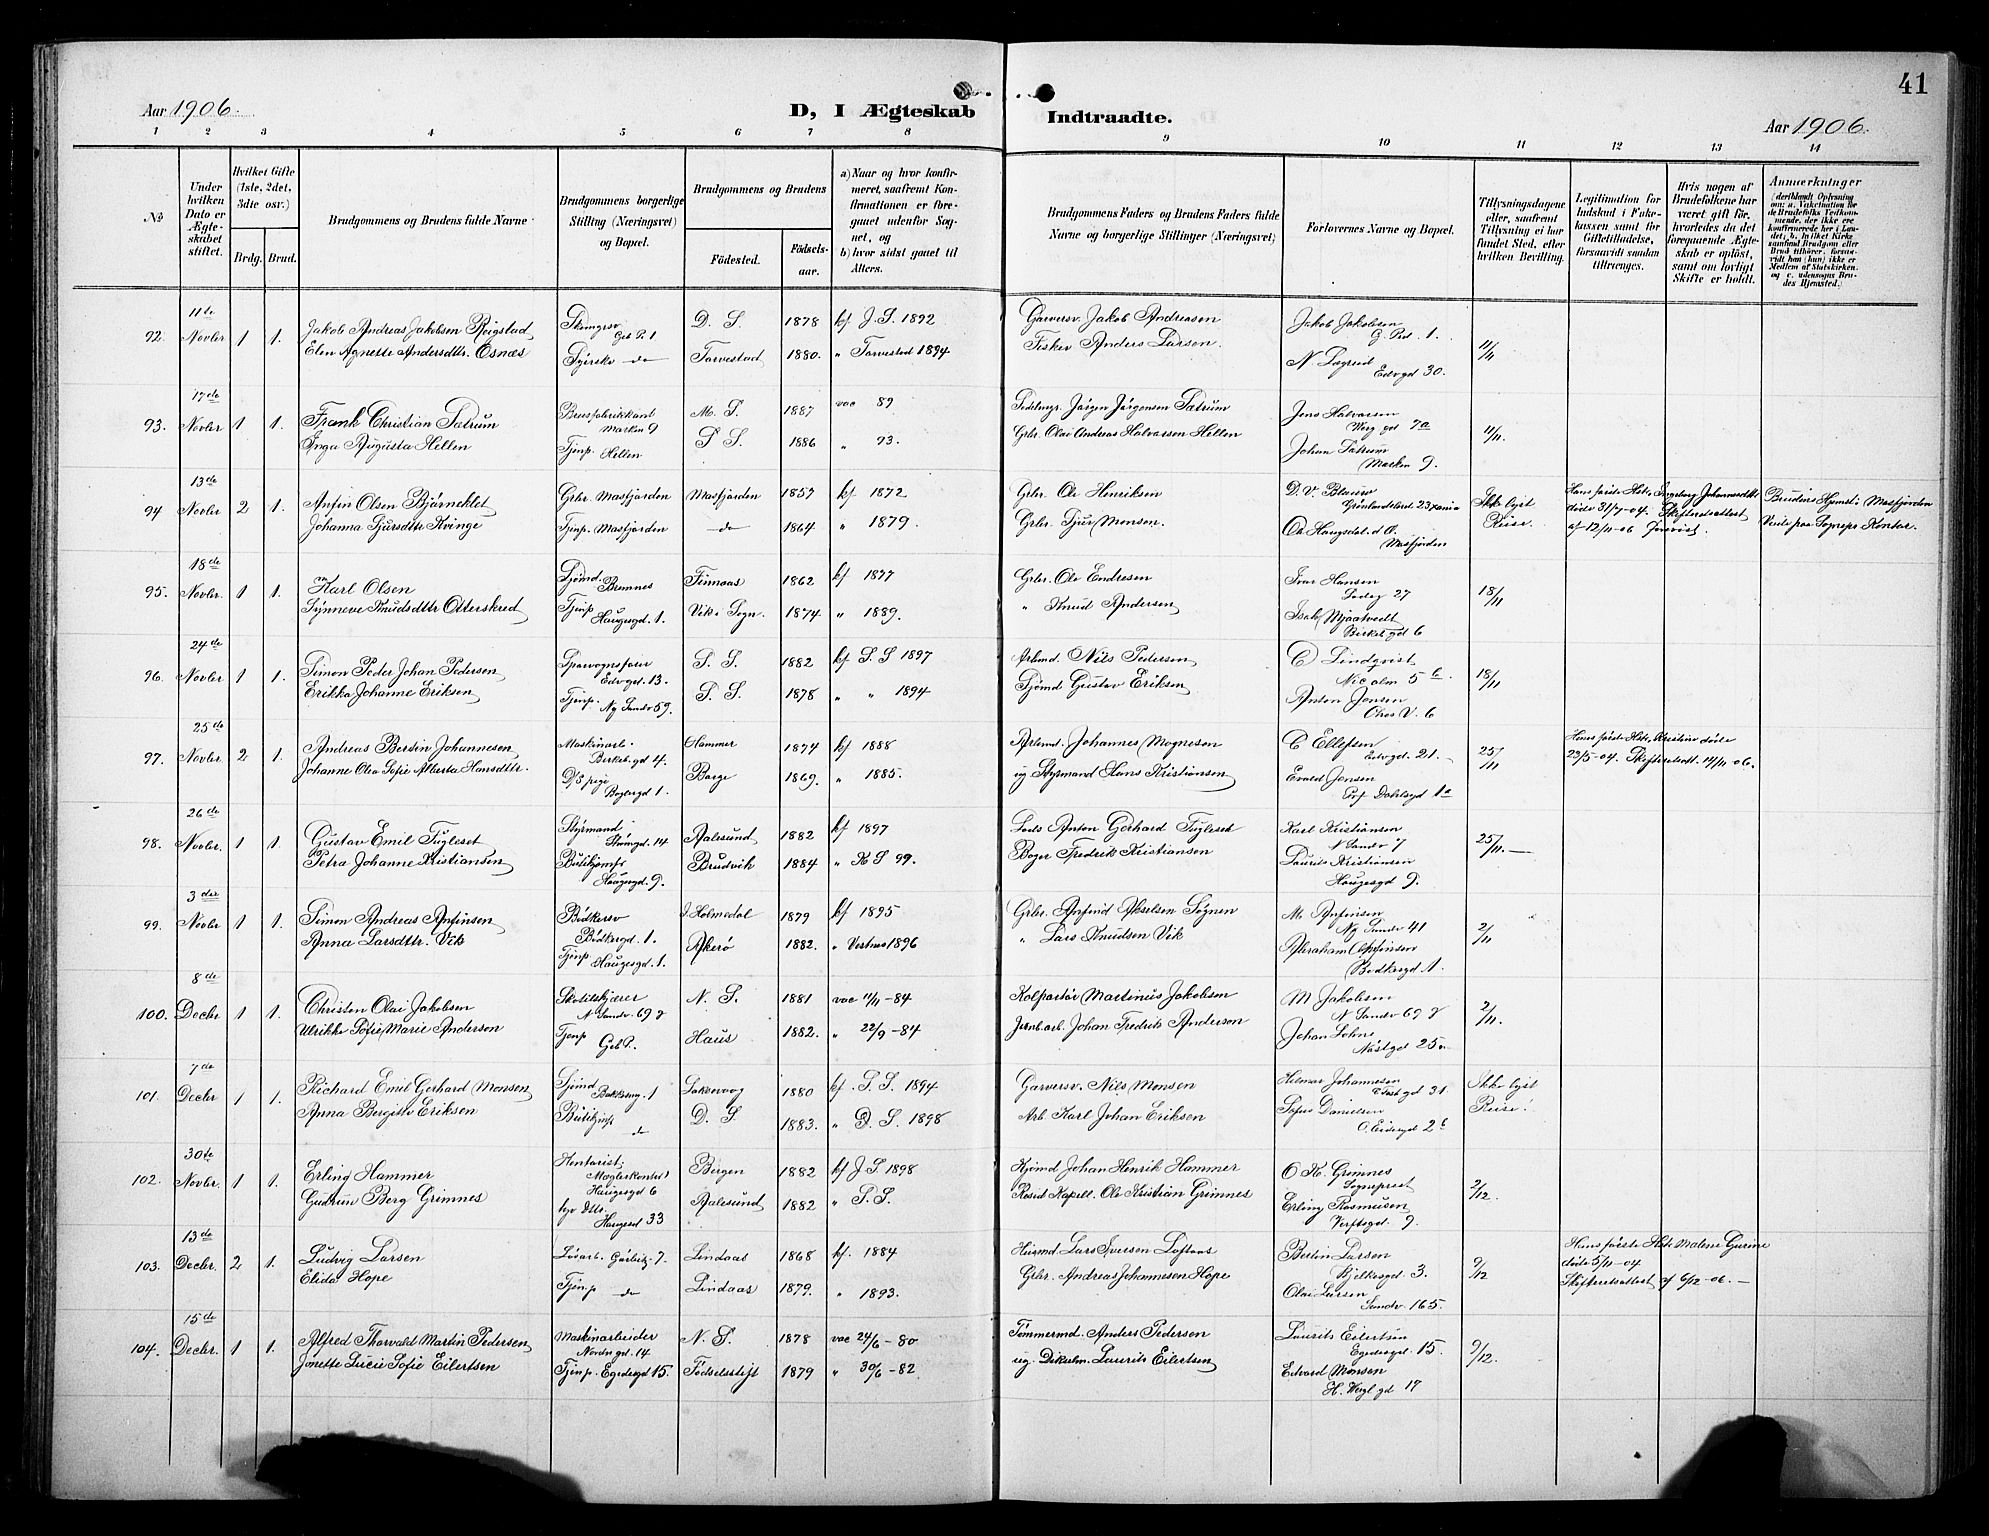 41
Aar 1906.
D, I Ægteskab Indtraadte.
Aar 1906.
1 2 3 4 5 6 7 8 9 10 11 12 13 14
No
Under hvilken Dato er Ægteskabet stiftet.
Hvilket Gifte (1ste, 2det, 3die osv.)
Brdg. Brud.
Brudgommens og Brudens fulde Navne
Brudgommens borgerlige Stilling (Næringsvei) og Bopæl.
Brudgommens og Brudens
Fødested. Fødselsaar.
a) Naar og hvor konfirmeret, saafremt Konfirmationen er foregaaet udenfor Sognet, og
b) hvor sidst gaaet til Alters.
Brudgommens Faders og Brudens Faders fulde Navne og borgerlige Stillinger (Næringsvei)
Forlovernes Navne og Bopæl.
Tillysningsdagene eller, saafremt Tillysning ei har fundet Sted, efter hvilken Bevilling.
Legitimation for Indskud i Enkekassen samt for Giftetilladelse, forsaavidt saadan tiltrænges.
Hvis nogen af Brudefolkene har været gift før, hvorledes da det foregaaende Ægteskab er opløst, samt om lovligt Skifte er holdt.
Anmærkninger
(deriblandt Oplysning om: a. Vakcination for de Brudefolks Vedkommende, der ikke ere konfirmerede her i Landet; b. hvilket Kirkesamfund Brudgom eller Brud tilhører, forsaavidt han (hun) ikke er Medlem af Statskirken og c. udensogns Brudes Hjemsted.)
11te
92. Novbr 1 1. Jakob Andreas Jakobsen Reigstad D. S. 1878 kf J. S. 1892 Garversv. Jakob Andreasen Jakob Jakobsen
Elen Agnette Andersdtr. Osnæs Torvestad 1880. " Torvestad 1894 Fisker Anders Larsen. 11/11
Edvgd 30.
17de
93. Novbr 1 1. Frank Christian Sætrum Brusfabrikkant Marken 9 M. S. 1887 vac 89 Jørgen Jørgensen Sætrum Jens Halvorsen
Inga Augusta Hellen Tjenp. Hellen S S. 1886 " 93. Gbr. Olai Andreas Halvorsen Hellen 11/11.
Johan Sætrum
Marken 9.
13de
94 Novbr 2 1. Anfin Olsen Bjørneklet Gbr. Masfjorden Masfjorden 1857 kf 1872 Gbr. Ole Henriksen D. V. Blauw Ikke lyst Hans første Hst. Ingeborg Johannesdtr Brudens Hjemst. Masfjorden
Johanna Gjursdtr Kvinge Tjenp. Masfjorden do 1864 " 1879. Gbr. Gjur Monsen. Reise. døde 31/7-04. Skifteretsattest Viede paa Sogneps Kontor.
Masfjorden af 12/11-06 forevist.
18de
95. Novbr 1 1. Karl Olsen Sjømd. Bremnes Finnaas 1862 kf 1877 Gbr. Ole Endresen Ivar Hansen 18/11
Synneve Knudsdtr Otterskred Tjenp Haugesgd. 1. Vik i Sogn. 1874 " 1889. " Knud Andersen
Birkebgd 6
24de
96. Novbr 1 1. Simon Peder Johan Pedersen Sporvognsfører Edvgd. 13. S. S. 1882 kf S. S 1897 Arbmd. Nils Pedersen C Lindqvist 18/11
Erikka Johanne Eriksen Tjenp. Ny Sandv 59. S. S. 1878 " " 1894 Sjømd Gustav Eriksen Anton Jensen
Chos V. 6
25de
97. Novbr 2 1. Andreas Bertin Johannesen Maskinarb. Birkebgd 4. Hammer 1874 kf 1888 Arbmd. Johannes Mognesen C Ellefsen Edvgd. 21. 25/11 Hans første Hst. Kristine døde
Johanne Olea Sofie Alberta Hansdtr. Borge 1869. " 1885. ug Styrmand Hans Kristiansen Evald Jensen 23/5-04. Skifteretsatt. 14/11-06.
26de
98. Novbr. 1 1. Gustav Emil Fugleset Styrmand Aalesund 1882 kf 1897 Lods Anton Gerhard Fugleset Karl Kristiansen N Sandv 7 25/11. —
Petra Johanne Kristiansen Butikjomfr Haugesgd. 9. Brudvik 1884 " K S 99. Bager Fredrik Kristiansen Laurits Kristiansen
Haugesgd 9.
3die
99. Novbr 1 1. Simon Andreas Anfinsen Bødkersv Bødkergd. 1. I. Holmedal 1879 kf 1895 Gbr. Anfind Akselsen Sognen M. Anfinsen Ny Sandv 41 2/11
Anna Larsdtr. Vik Tjenp Haugesgd. 1. Akerø 1882. " Vestnes 1896 " Lars Knudsen Vik Abraham Anfinsen
Bødkergd 1.
8de
100. Decbr 1 1. Christen Olai Jakobsen N Sandv. 69 N. S. 1881 vac 11/11-84 Kolportør Martinus Jakobsen M Jakobsen N Sandv 69 2/11.
Ulrikke Sofie Marie Anderson Tjenp Haus 1882. " 22/9-84 Jernb.arb. Johan Fredrik Anderson Johan Sohne
7de
101. Decbr 1 1. Richard Emil Gerhard Monsen Sjømd Laksevaag 1880 kf. S. S. 1894 Garversv. Nils Monsen Hilmar Johannesen Ikke lyst
Anna Bergitte Eriksen do D. S. 1883. " D. S. 1898 Arb Karl Johan Eriksen Sofus Danielsen Reise!
30te
102. Novbr. 1 1. Erling Hammer Kontorist Mæglerkontor Haugesgd 6 Bergen 1882 kf J. S 1898 Kjømd Johan Henrik Hammer O K. Grimnes Sognepræst 2/12
Gudrun Berg Grimnes Haugesd 33 Aalesund 1882 " S. S. Resid Kapell. Ole Kristian Grimnes Erling Rasmussen
Verftsgd. 9.
13de
103. Decbr. 2 1. Ludvig Larsen Løsarb. Lindaas 1868 kf. 1884 Husmd Lars Iversen Loftaas Bertin Larsen Bjelkesgd 3. 9/12 Hans første Hst. Malene Gurine
Elida Hope Tjenp do Lindaas 1879. " 1893. Gbr. Andreas Johannesen Hope Olai Larsen døde 5/11-04
Sandv 165. Skifteretsattest af 6/12-06. —
15de
104. Decbr. 1 1. Alfred Thorvald Martin Pedersen Maskinarbeider Nordregd. 14. N. S. 1878 vac 24/6-80 Tømmermd. Anders Pedersen Laurits Eilertsen Egedesgd. 15. 9/12.
Jonette Lucie Sofie Eilertsen Tjenp. Egedesgd 15. Fødselsstift 1879 " 30/6-82 Laurits Eilertsen Edvard Monsen